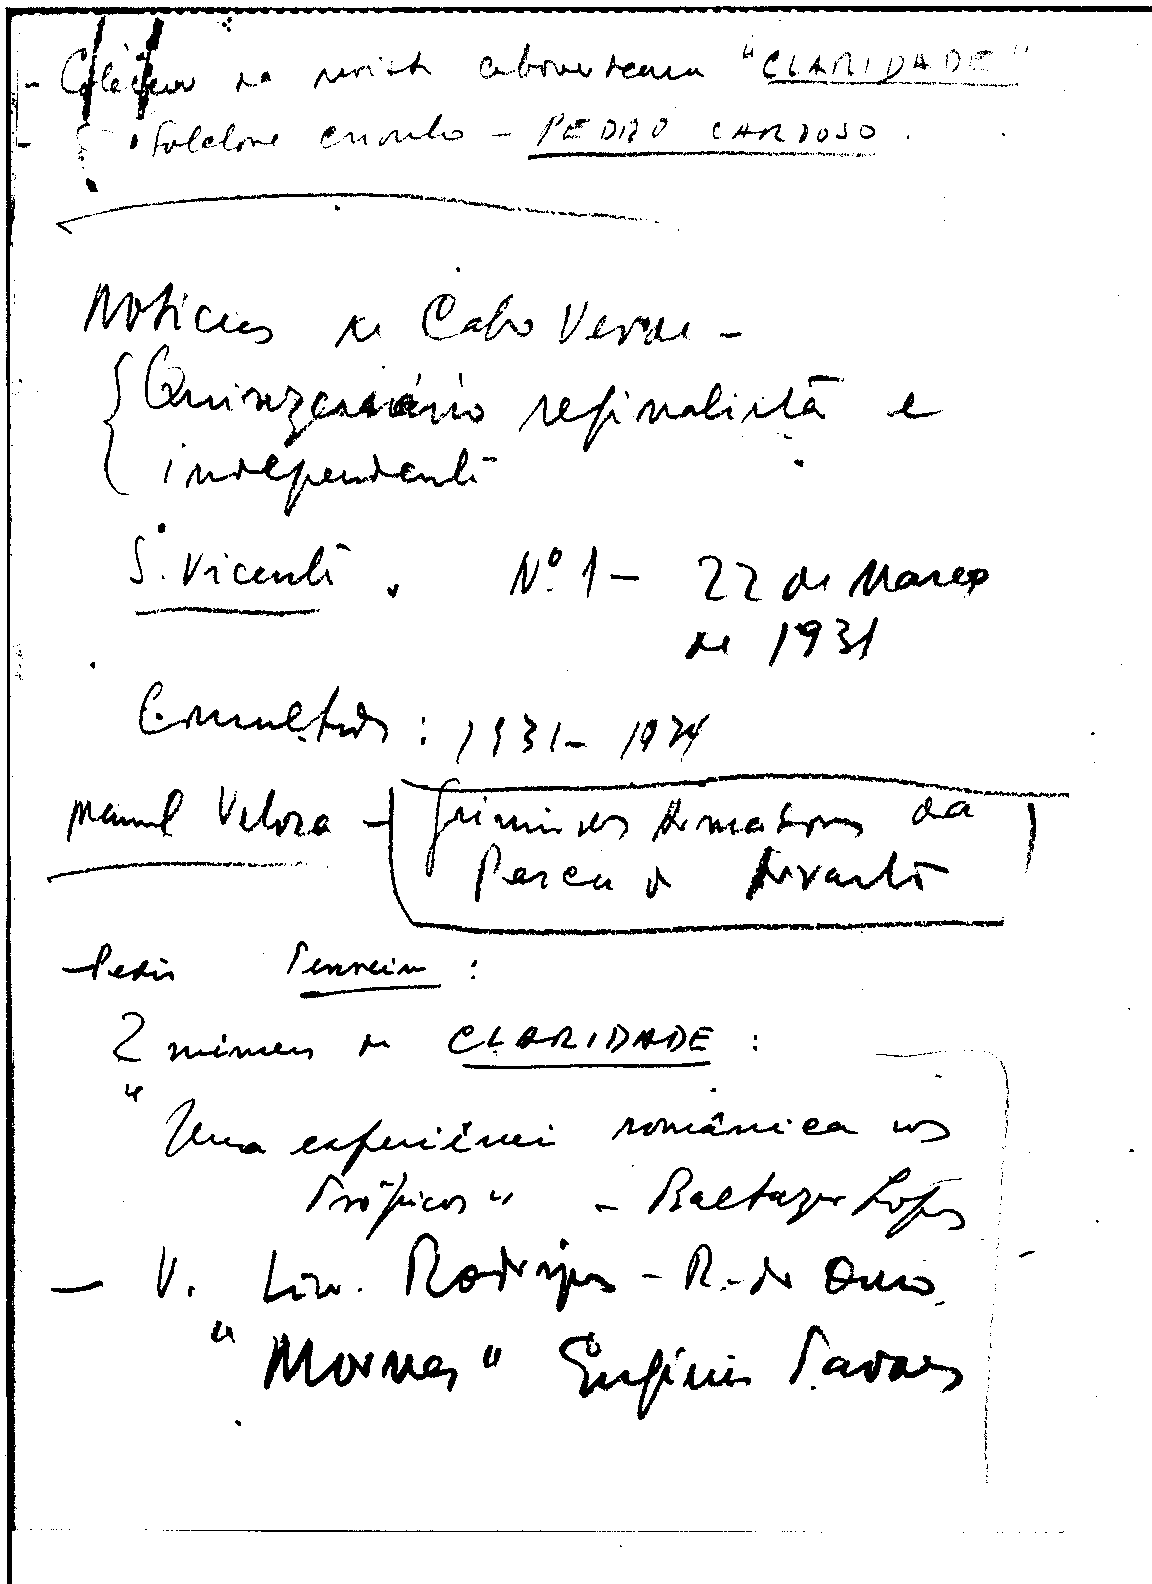 - Colecção da revista caboverdeana "CLARIDADE"
- "Folclore crioulo - PEDRO CARDOSO.
Notícias de Cabo Verde -
Quinzenário regionalista e
independente
S. Vicente. Nº. 1 - 22 de Março
de 1931
Consultados: 1931 - 1934
Manuel Veloza - da
Pesca do
- Pedir Tenreiro:
2 números de CLARIDADE:
"Uma experiência românica nos
Trópicos" - Baltazar Lopes
- V. Liv. Rodrigues - R. do Ouro.
"Mornas" Eugénio Tavares